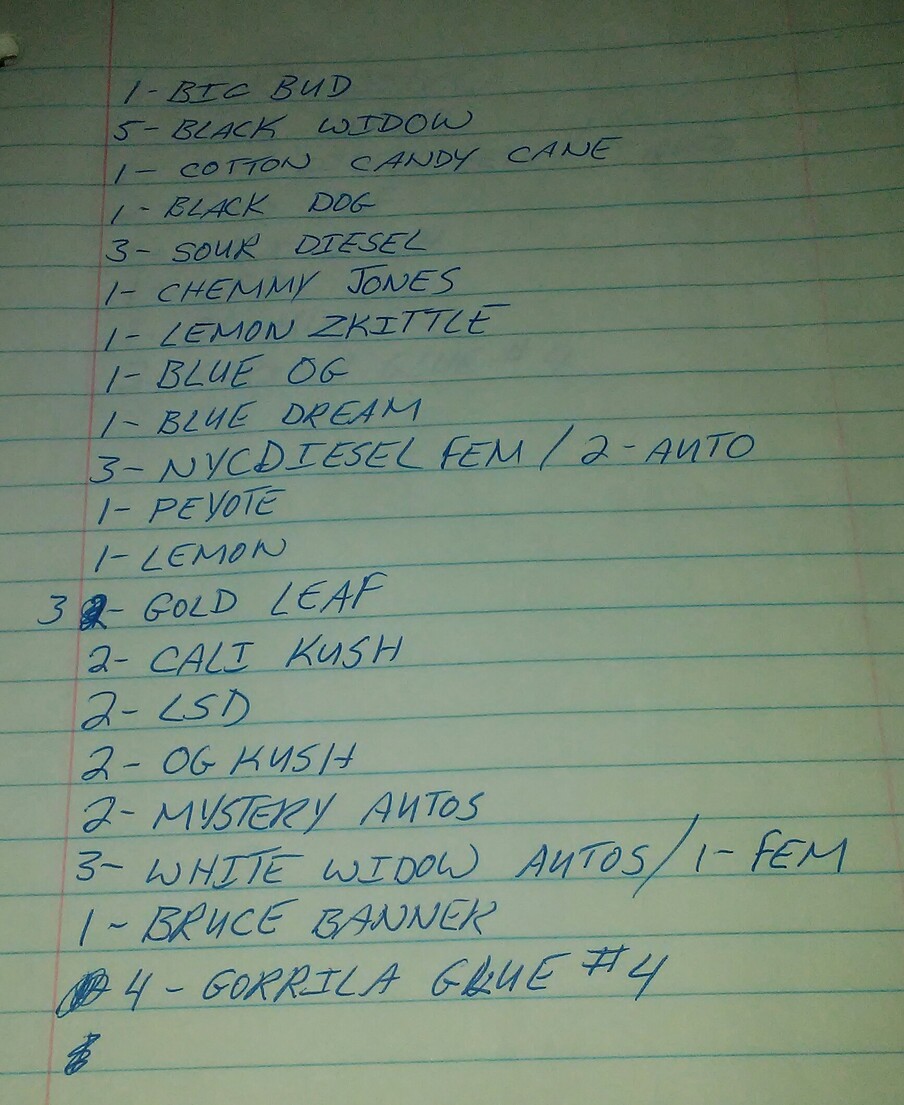 1- BIG BUD
5- BLACK WIDOW
1- COTTON CANDY CANE
1- BLACK DOG
3- SOUR DIESEL
1- CHEMMY JONES
1- LEMON ZKITTLE
1- BLUE OG
1- BLUE DREAM
3- NYCDIESEL FEM / 2- AUTO
1- PEYOTE
1- LEMON
3 - GOLD LEAF
2- CALI KUSH
2- LSD
2- OG KUSH
2- MYSTERY AUTOS
3- WHITE WIDOW AUTOS / 1- FEM
1- BRUCE BANNER
4- GORRILA GLUE #4